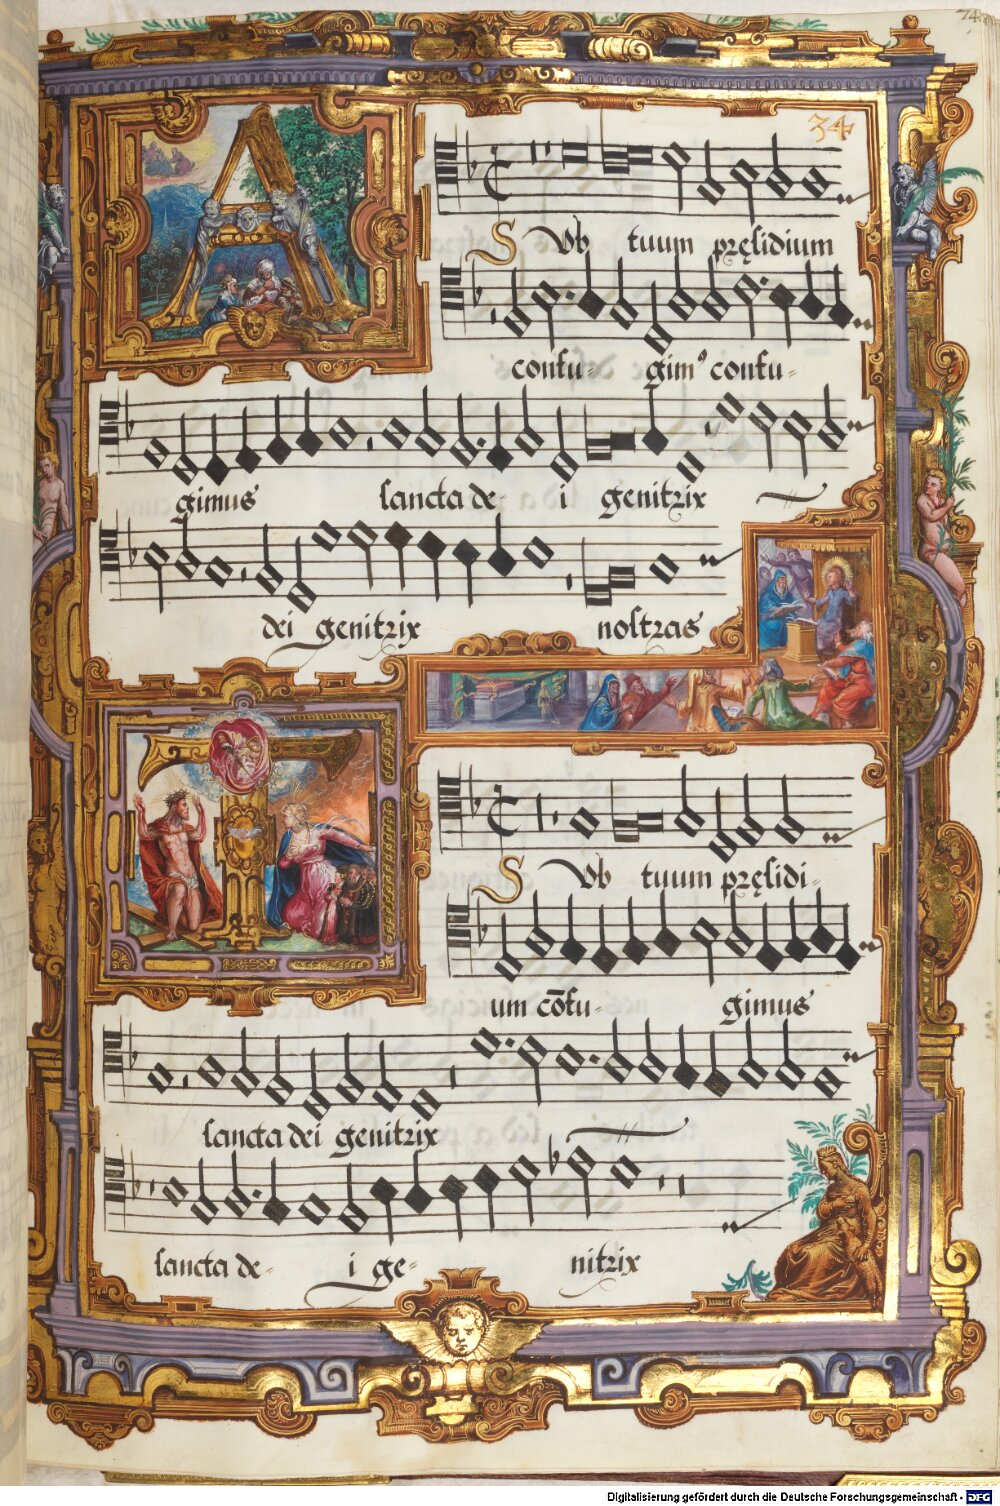 74.
34
A
Sub tuum pręsidium
confu= gimꝰ confu=
gimus sancta de= i genitrix
dei genitrix nostras
T
Sub tuum pręsidi=
um cōfu= gimus
sancta dei genitrix
sancta de= i ge= nitrix
Digitalisierung gefördert durch die Deutsche Forschungsgemeinschaft - DFG